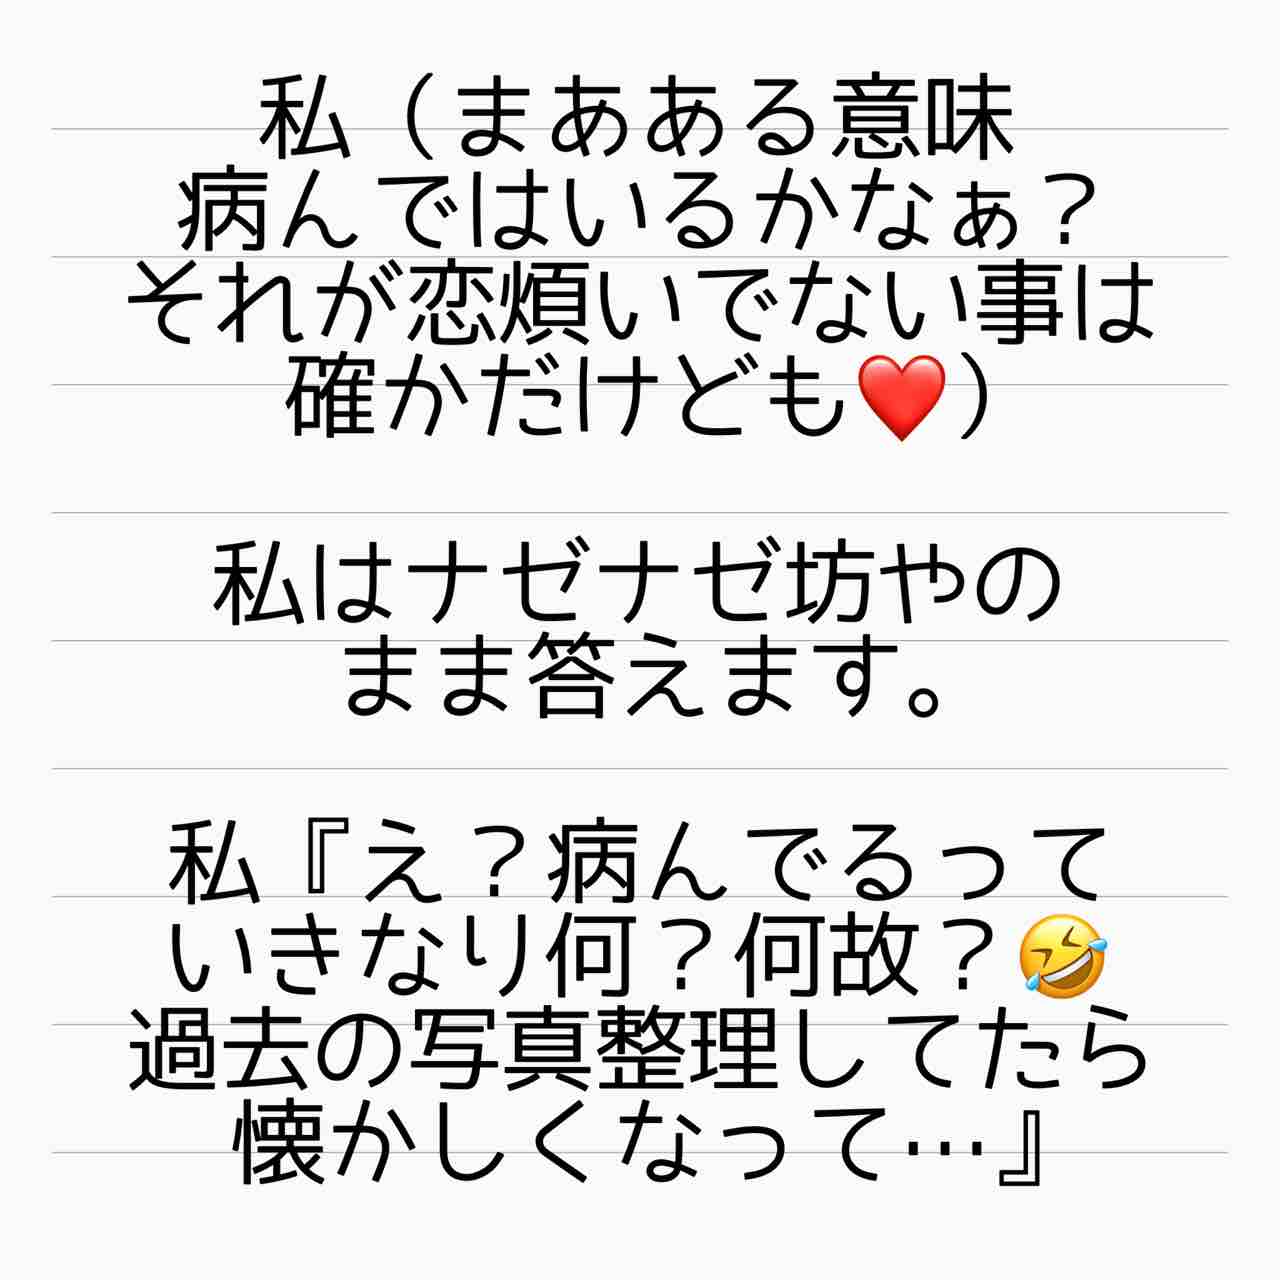 私（まあある意味
病んではいるかなぁ？
それが恋煩いでない事は
確かだけども❤️）
私はナゼナゼ坊やの
まま答えます。
私『え？病んでるって
いきなり何？何故？🤣
過去の写真整理してたら
懐かしくなって…』